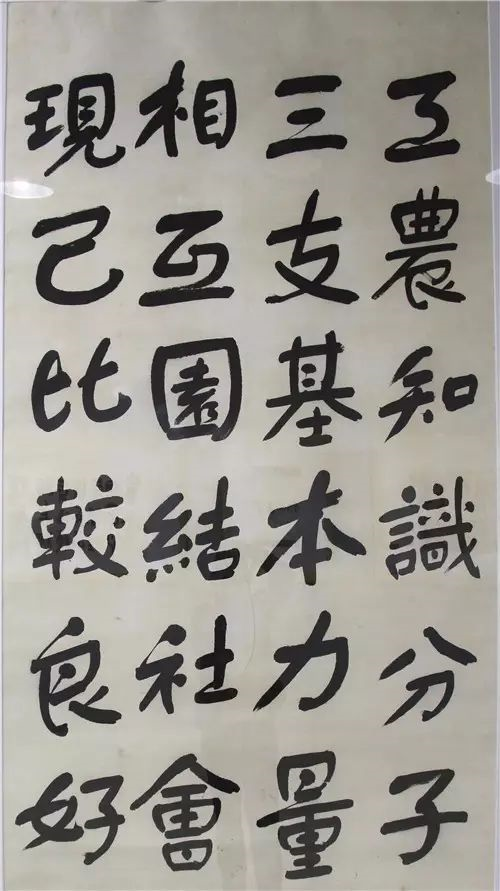 工農知識分子
三支基本力量
相互團結社會
現已比較良好